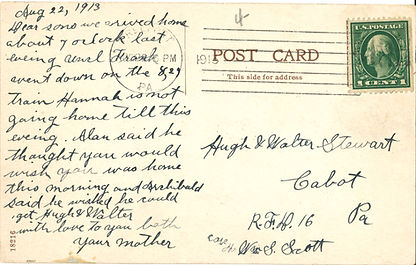 Aug 22, 1913
Dear sons we arived home
about 7 oclock last
eveing Frank
went down on the 8,29
train Hannah is not
going home till this
eveing. Alan said he
thought you would
wish you was home
this morning and Archibald
said he wished he could
get Hugh & Walter
with love to you both
your mother
18216
PM
PA
191
4
POST CARD
This side for address
U.S. POSTAGE
1 CENT 1
Hugh & Walter Stewart
Cabot
R.F.D. 16 Pa
care of Wm. S. Scott